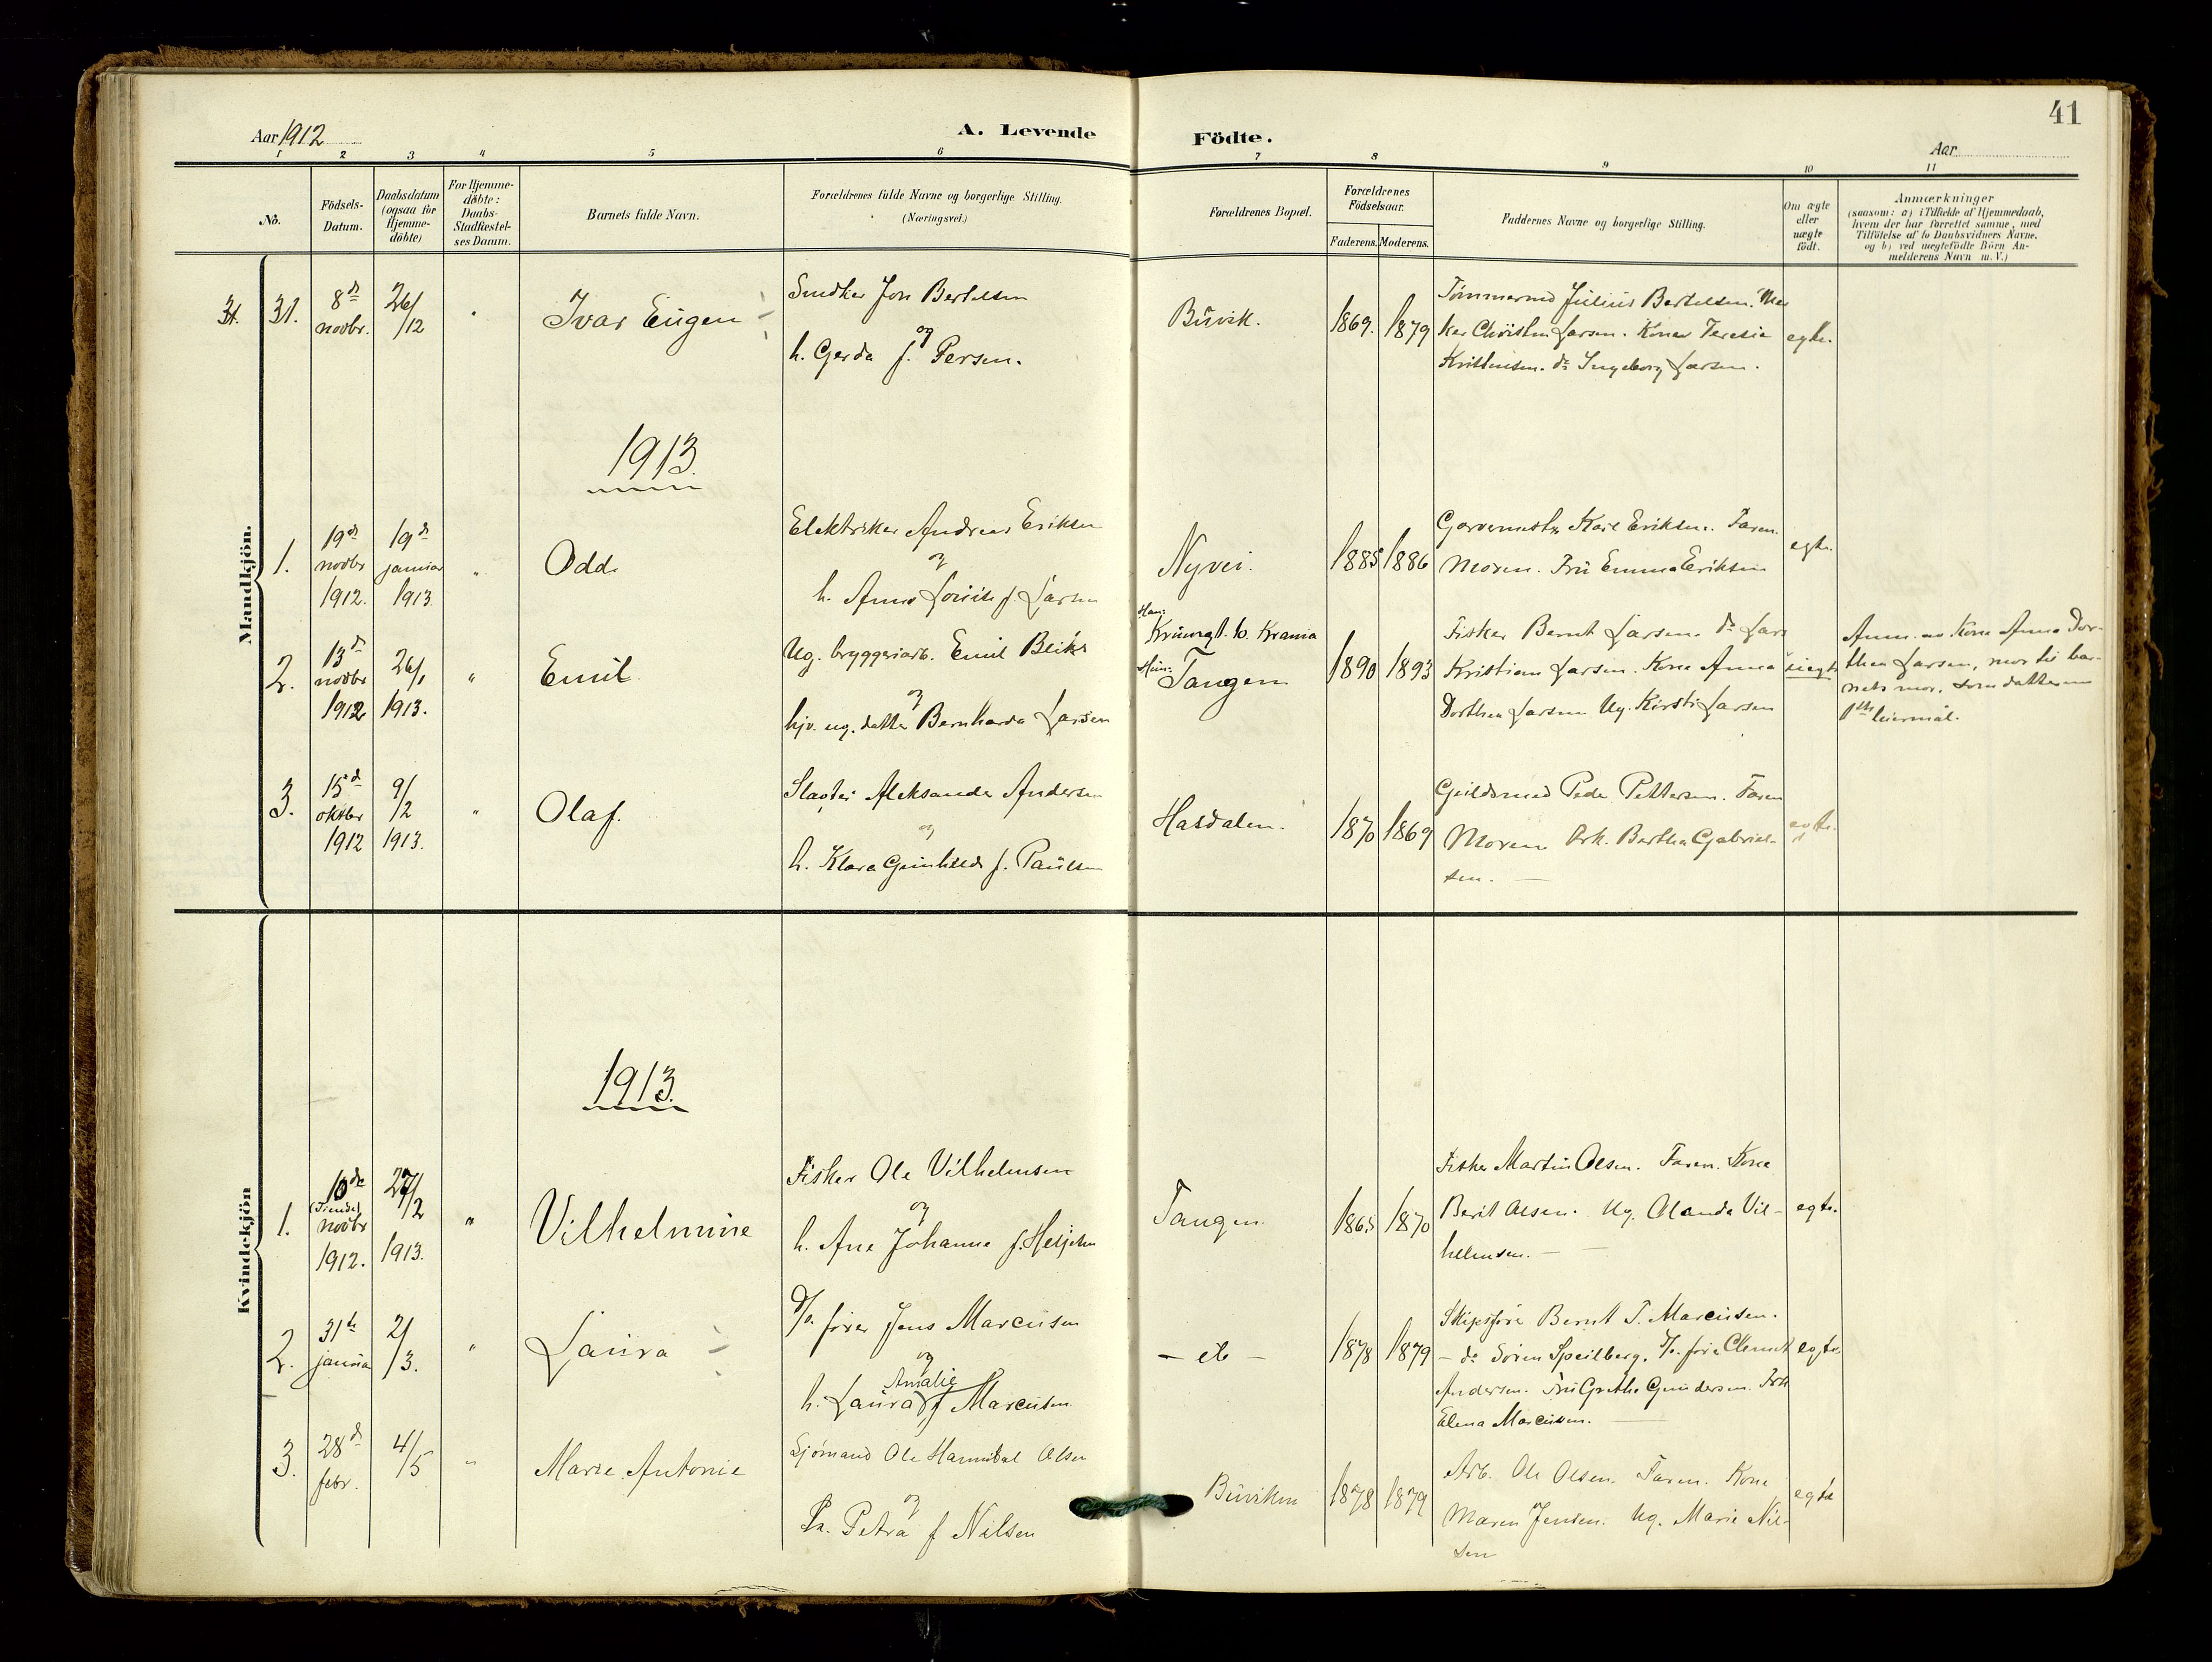 41
Aar 1912
A. Levende Födte.
Aar
1 2 3 4 5 6 7 8 9 10 11
No.
Födsels-
Datum.
Daabsdatum
(ogsaa for
Hjemme-
döbte)
For Hjemme-
döbte:
Daabs-
Stadfæstel-
ses Datum.
Barnets fulde Navn.
Forældrenes fulde Navne og borgerlige Stilling.
(Næringsvei.)
Forældrenes Bopæl.
Forældrenes
Födselsaar.
Faderens. Moderens.
Faddernes Navne og borgerlige Stilling.
Om ægte
eller
uægte
födt.
Anmærkninger
(saasom: a) i Tilfælde af Hjemmedaab,
hvem der har forrettet samme, med
Tilföielse af to Daabsvidners Navne,
og b) ved uægtefödte Börn An-
melderens Navn m.V.)
Mandkjön.
31. 31.
8d
novbr.
26/12
"
Ivar Eugen
Snedker Jon Bertelsen
og
h. Gerda f. Persen.
Buvik.
1869. 1879
Tømmermd Julius Bertelsen.
Christen Larsen. Kone Teresie
Kristensen. do Ingeborg Larsen.
egte.
1913.
1.
19d
novbr
1912.
19d
januar
1913
"
Odd.
Elektriker Andreas Eriksen
og
h. Anna Louise f. Larsen
Nyvei.
1885 1886
Garvermstr. Karl Eriksen. Faren.
Moren. Fru Emma Eriksen
egte.
2.
13d
novbr
1912
26/1
1913.
"
Emil
Ug. bryggeriarb. Emil
og
hjv. ug. datter Bernharda Larsen
Han:
Krania
Hun: Tangen
1890 1893
Fisker Bernt Larsen. do Lars
Kristian Larsen. Kone Anna
Dorthea Larsen Ug. Kirsti Larsen
uegte
Anm. av Kone Anna Dor-
thea Larsen, mor til bar-
nets mor, som datteren
1ste leiermål.
3.
15d
oktbr
1912
9/2
1913.
"
Olaf.
Slagter Aleksander Andersen
og
h. Klara Gunhild f. Paulsen
Hasdalen.
1870 1869
Guldsmed Peder Pettersen. Faren
Moren Frk. Bertha Gabriel-
sen.
egte.
Kvindekjön
1913.
1.
10de
(Tiende)
novbr
1912.
27/2
1913.
"
Vilhelmine
Fisker Ole Vilhelmsen
og
h. Ane Johanne f.
Tangen.
1865 1870
Fisker Martin Olsen. Faren. Kone
Berit Olsen. Ug. Olanda Vil-
helmsen.
egte.
2.
31te
januar
2/3.
"
Laura
D/s fører Jens Marcussen
og
Amalie
h. Laura f Marcussen
1878 1879
Skipsfører Bernt T. Marcussen.
- do Søren Speilberg. D/s. fører Clemet
Andersen. Fru Grethe Gundersen. Frk
Elena Marcussen.
egte.
3.
28d
febr.
4/5
"
Marie Antonie
Sjømand Ole Hannibal Olsen
og
h. Petra f Nilsen
Buviken
1878 1879
Arb. Ole Olsen. Faren. Kone
Maren Jensen. Ug. Marie Nil-
sen
egte